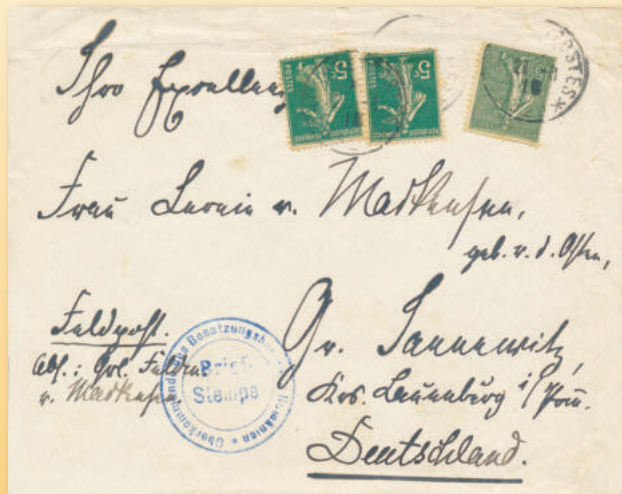 Ihro Exzellenz
5c 5c
POSTES POSTES
POSTES
Frau Leonie v. Mackensen,
geb. v. d. Osten,
Feldpost.
Abs.: Gel. Feldm.
v. Mackensen
Oberkommando Besatzungsheer Rumänien
Brief
Stempel
Gr. Jannewitz,
Krs. Lauenburg i/Pom.
Deutschland.